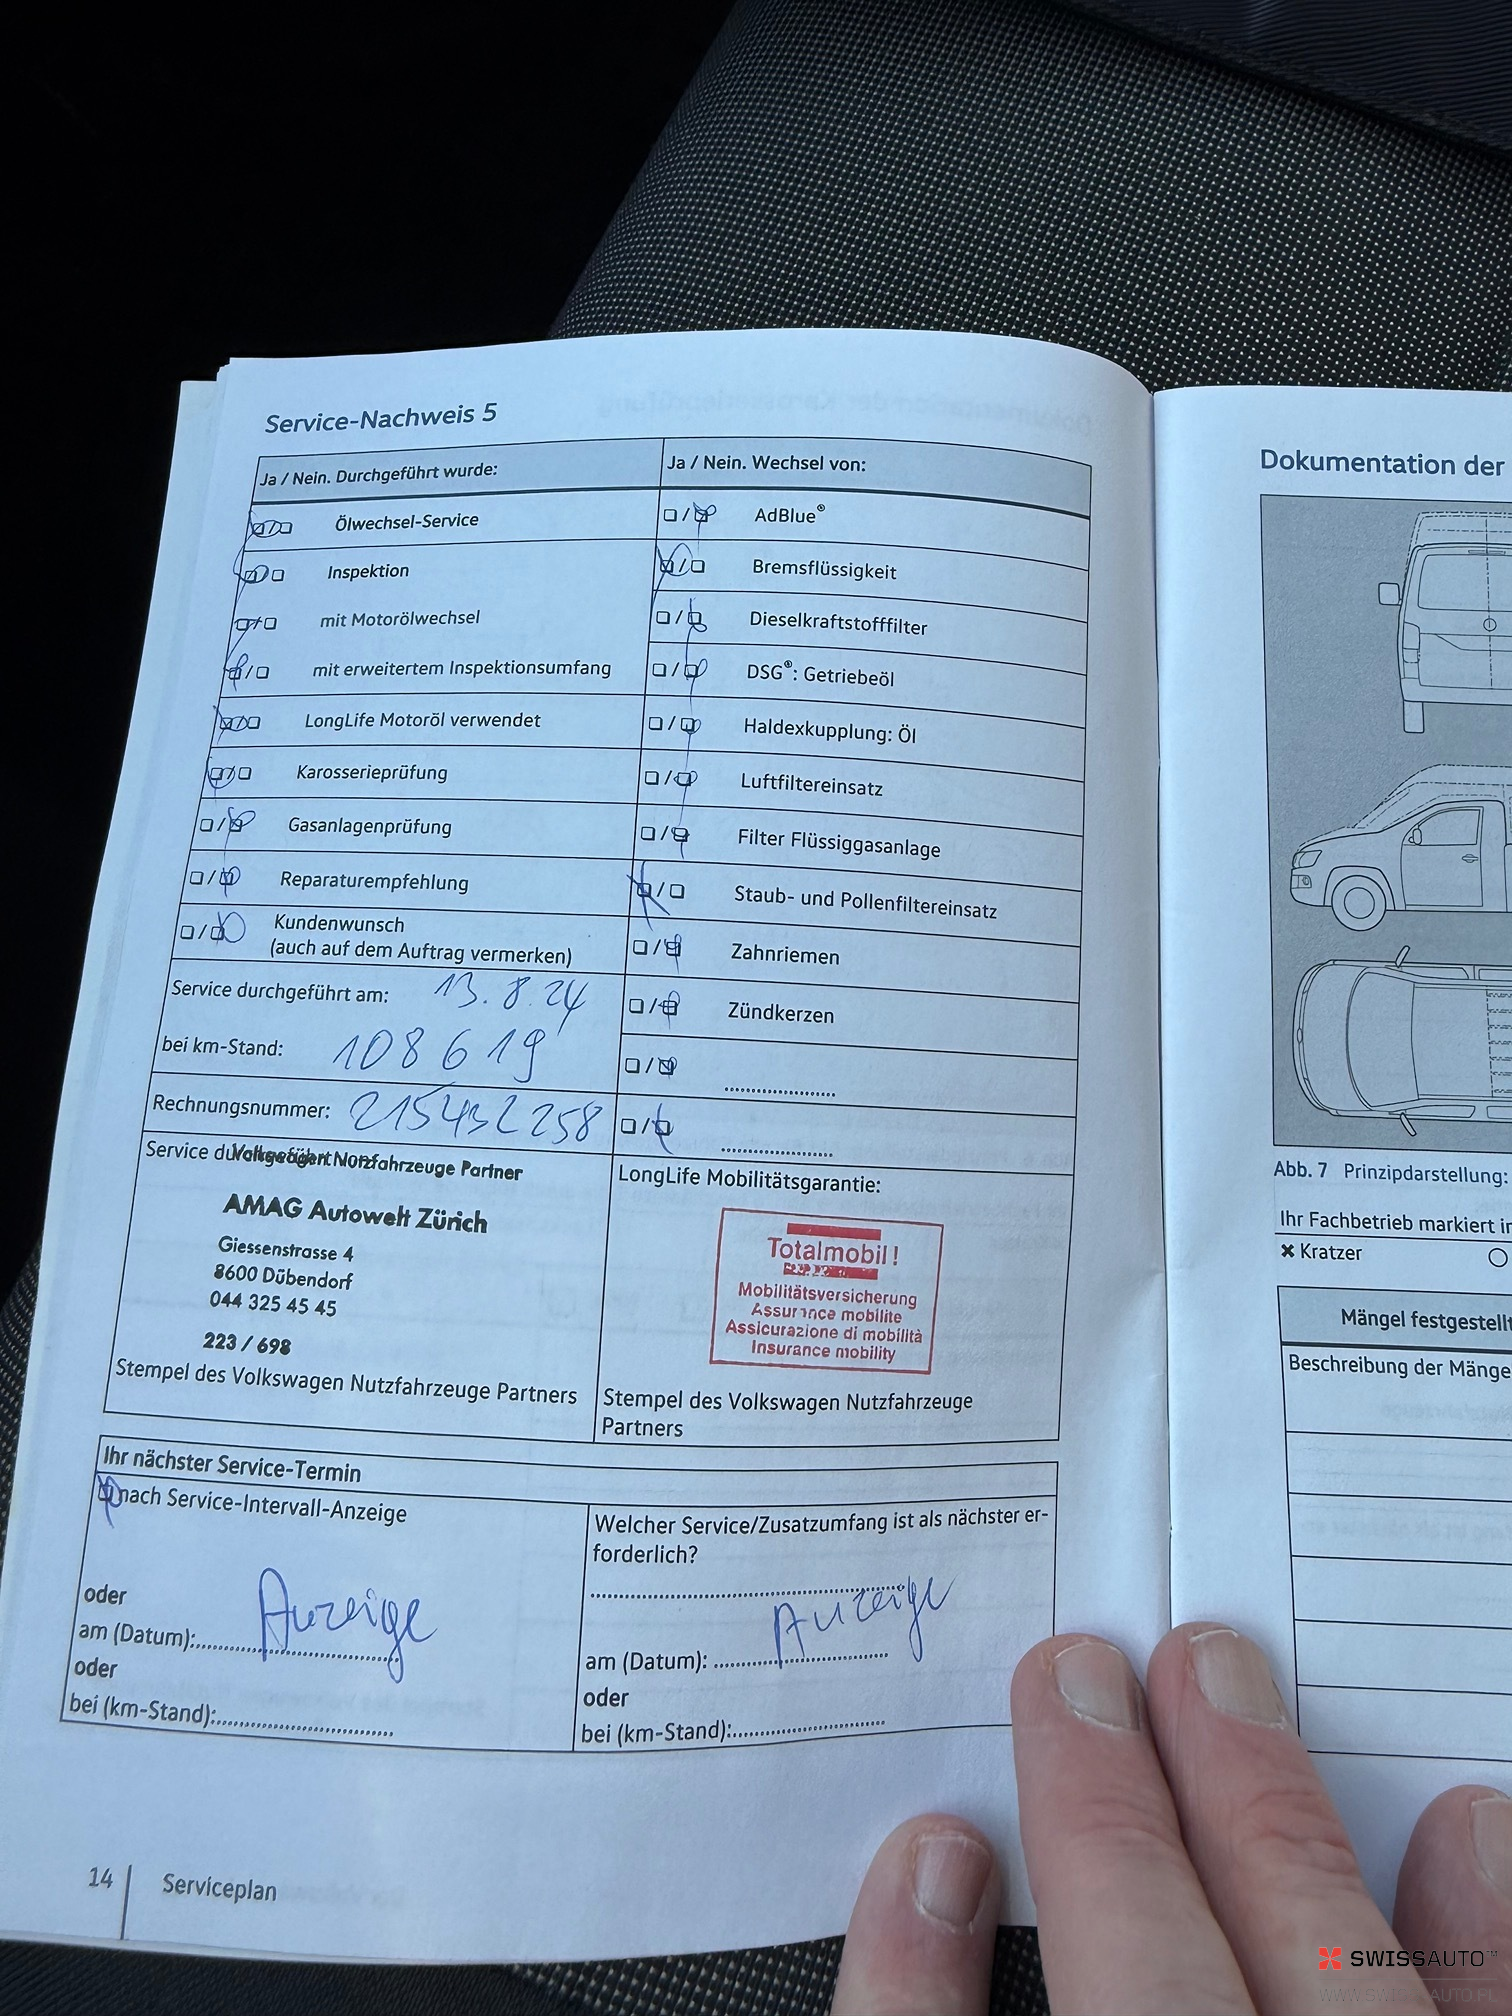 Service-Nachweis 5
Ja / Nein. Durchgeführt wurde:
Ja / Nein. Wechsel von:
Ölwechsel-Service
AdBlue®
Inspektion
Bremsflüssigkeit
mit Motorölwechsel
Dieselkraftstofffilter
mit erweitertem Inspektionsumfang
DSG®: Getriebeöl
LongLife Motoröl verwendet
Haldexkupplung: Öl
Karosserieprüfung
Luftfiltereinsatz
Gasanlagenprüfung
Filter Flüssiggasanlage
Reparaturempfehlung
Staub- und Pollenfiltereinsatz
Kundenwunsch
(auch auf dem Auftrag vermerken)
Zahnriemen
Zündkerzen
Service durchgeführt am: 13.8.24
bei km-Stand: 108619
Rechnungsnummer: 215432258
Service durchgeführt
Volkswagen Nutzfahrzeuge Partner
AMAG Autowelt Zürich
Giessenstrasse 4
8600 Dübendorf
044 325 45 45
223 / 698
Stempel des Volkswagen Nutzfahrzeuge Partners
LongLife Mobilitätsgarantie:
Totalmobil!
Mobilitätsversicherung
Assurance mobilite
Assicurazione di mobilità
Insurance mobility
Stempel des Volkswagen Nutzfahrzeuge
Partners
Ihr nächster Service-Termin
nach Service-Intervall-Anzeige
oder
Anzeige
am (Datum):
oder
bei (km-Stand):
Welcher Service/Zusatzumfang ist als nächster er-
forderlich?
Anzeige
am (Datum):
oder
bei (km-Stand):
14 Serviceplan
Dokumentation der
Abb. 7 Prinzipdarstellung:
Ihr Fachbetrieb markiert
Kratzer
Mängel festgestellt
Beschreibung der Mänge
SWISSAUTO™
WWW.SWISSAUTO.PL